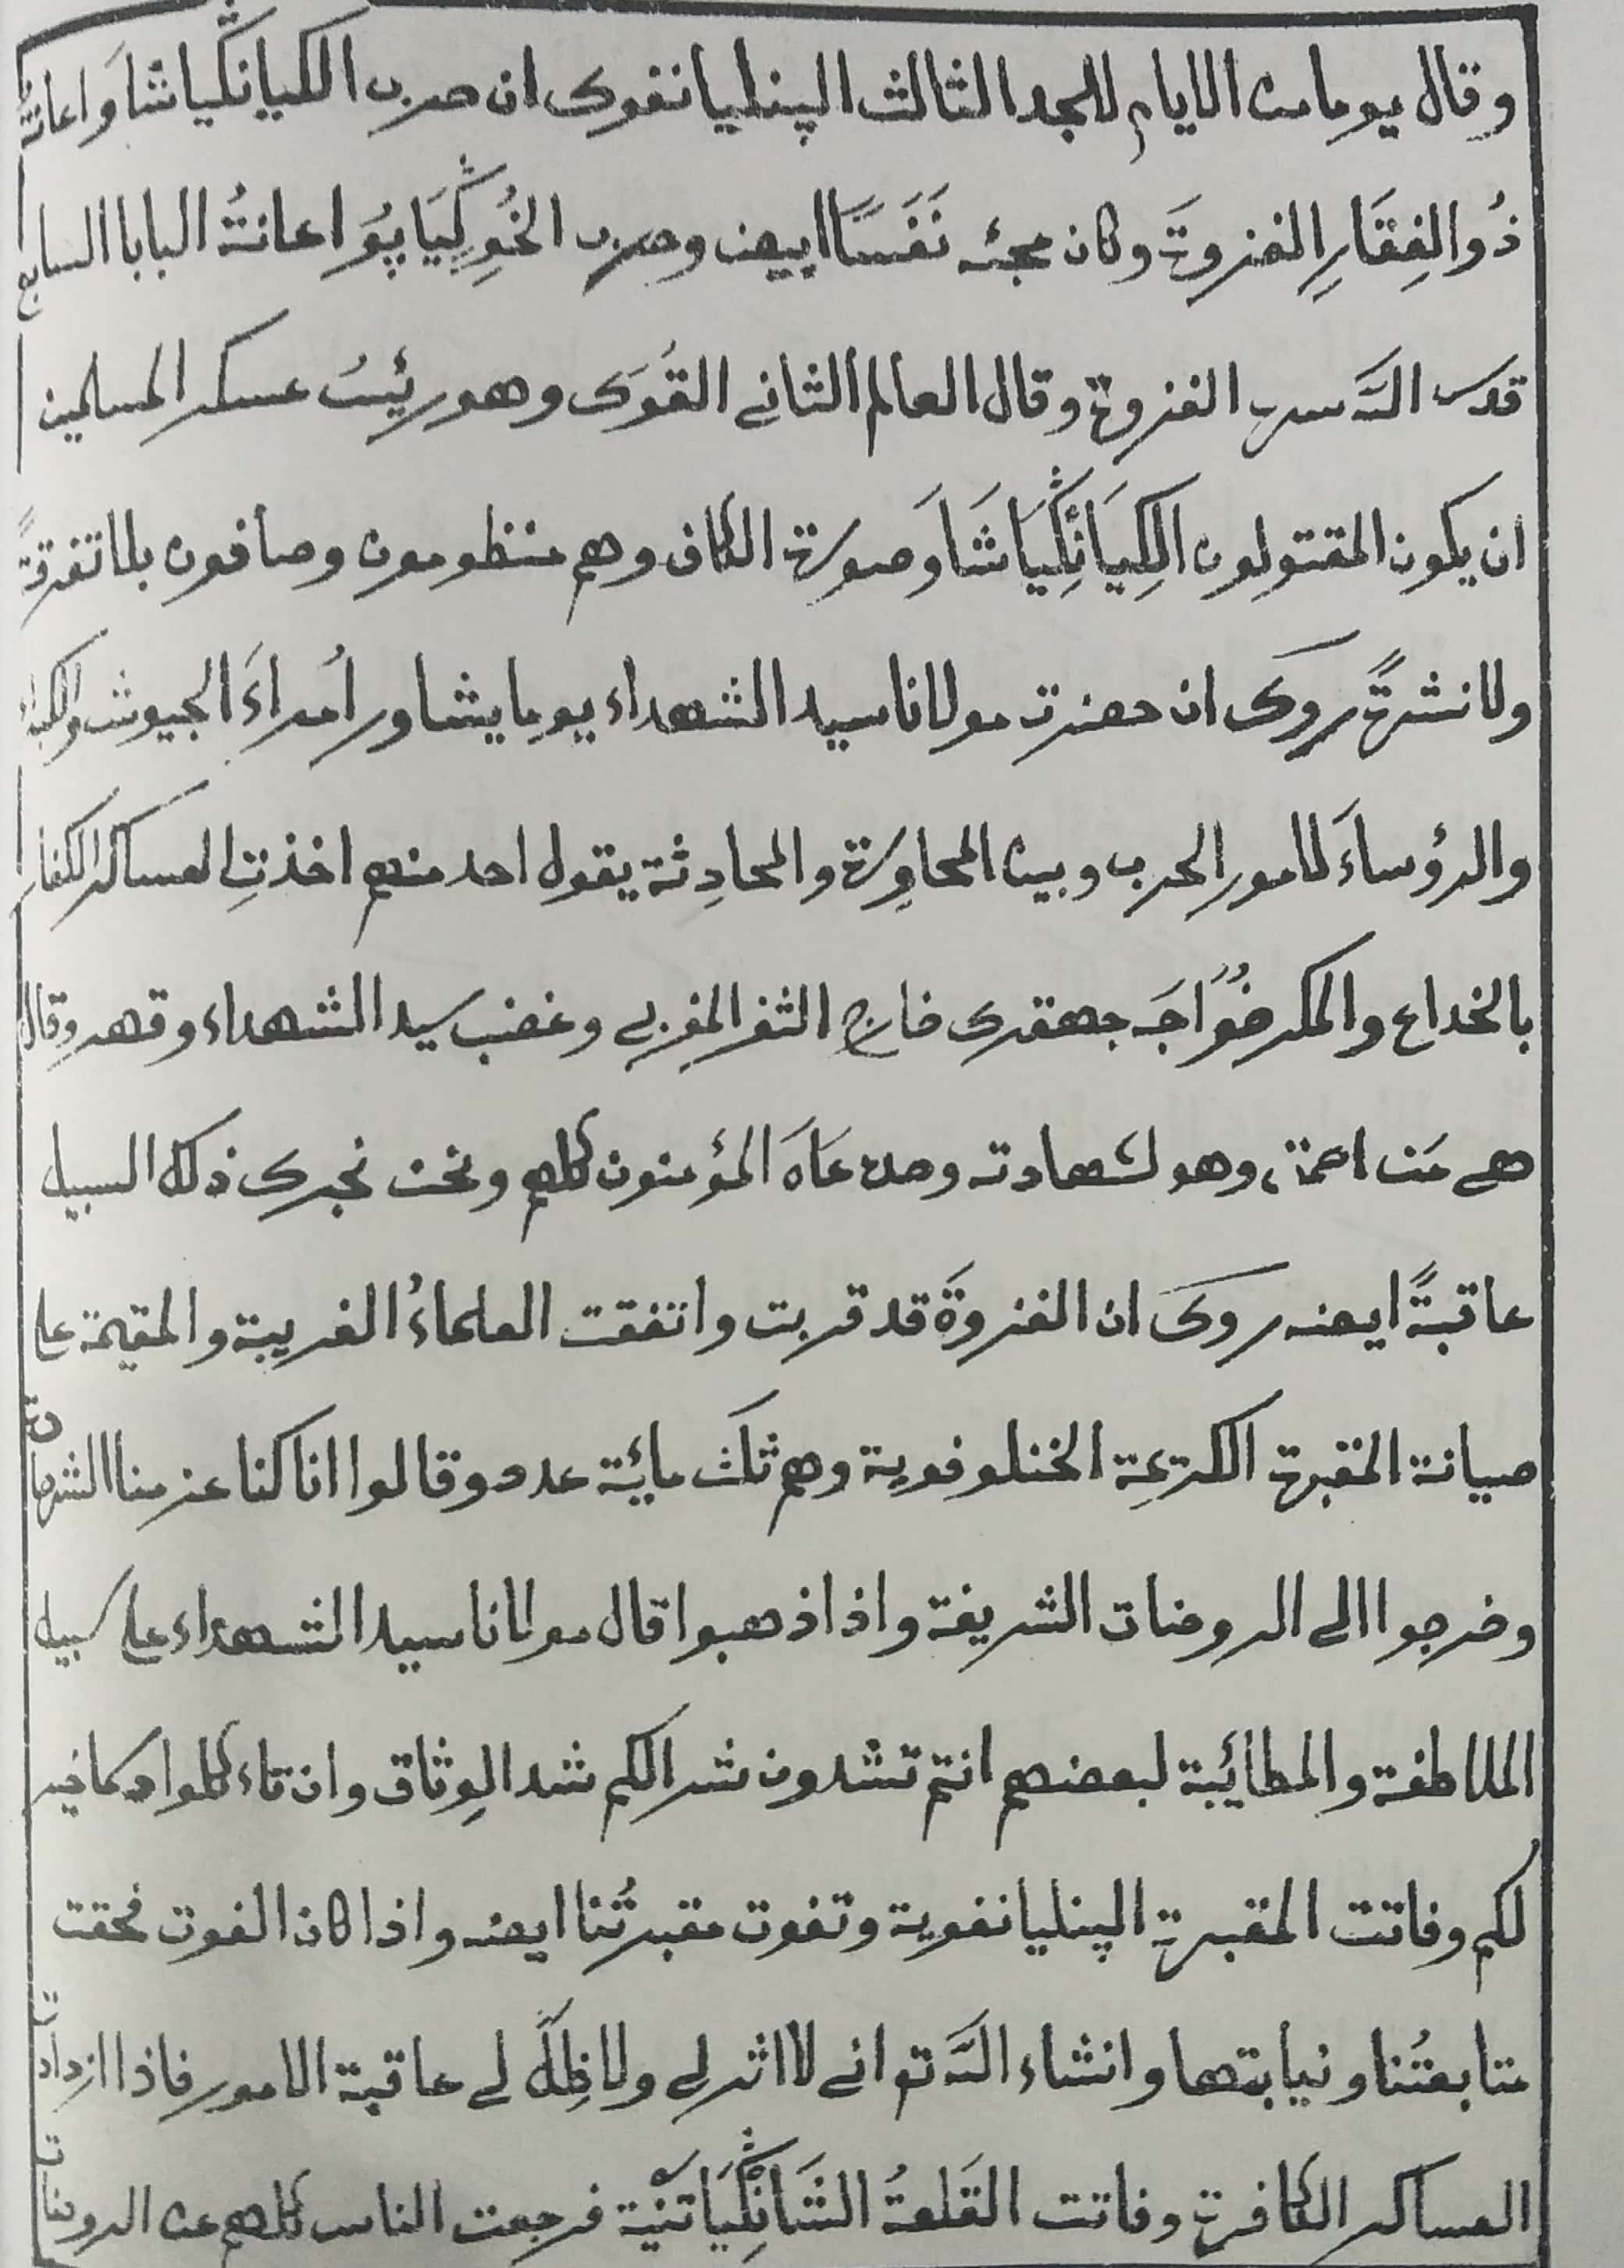 وقال يوما من الايام للجد الثالث الپنليانفوى ان حرب الكيانكياشاو اعانة
ذُو الفِقَارِ الغزوة وكان مجئه نَفَسًا ابيض وحرب الخُوكِيَاپُو اعانةُ البابا السابع
قدس الله سره الغزوة وقال العالم الثانى القُوَى وهو رئيس عسكر المسلمين
ان يكون المقتولون الكِيَانكِيَاشَاوَ صورة الكاف وهم منظومون وصافون بلا تفرقةً
ولا نشرةً روى ان حضرت مولانا سيد الشهداء يوما يشاور اُمراءَ الجيوش والكبراء
والرؤساءَ لامور الحرب وبين المحاوِرة والمحادِثة يقول احد منهم اخذتِ العساكر الكفار
بالخداع والمكر خُوَاجَه جهقرى خارج الثغر المغربى وغضب سيد الشهداء وقهر وقال
هى مَن اهمة، وهو لشهادته وصدعاه المؤمنون كلهم ونحن نجرى ذلك السبيل
عاقبةً ايضه روى ان الغزوةَ قد قربت واتفقت العلماءُ الغريبة والمقيمة على
صيانة المقبرة الكريمة الخنلوفوية وهم ثلث مائة عدد وقالوا انا كنا عزمنا الشهادة
وخرجوا الى الروضات الشريفة واذا ذهبوا قال مولانا سيد الشهداء على سبيل
الملاطفة والمطائبة لبعضهم انتم تشدون شرالكم شد الوِثاق وان تاءكلوا دكما فيه
لكم وفاتت المقبرة الپنليانفوية وتفوت مقبرتُنا ايضه واذا كان الفوت فحقت
متابعتُنا ونيابتها وانشاء الله توانى لا اثر لى ولا ظِلَّ لى عاقبة الامور فاذا ازدادت
العساكر الكافرة وفاتت القَلعةُ الشَانكِيَاتَنِية فرجعت الناس كلهم عن الروضات